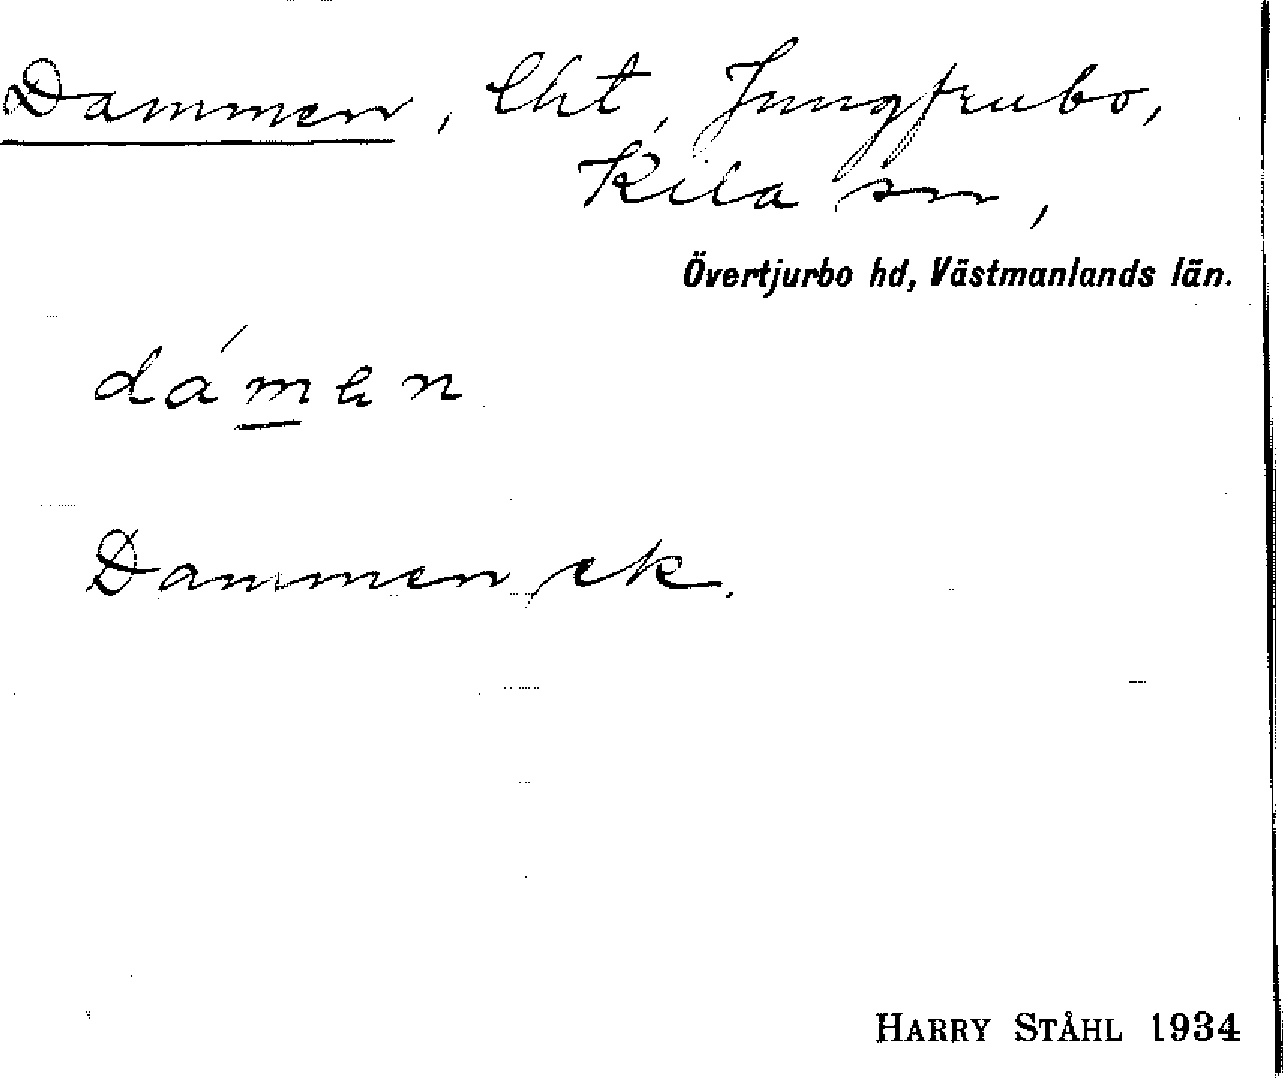 Dammen, lht, Jungfrubo,
Kila sn,
Övertjurbo hd, Västmanlands län.
dámen
Dammen ek.
HARRY STÅHL 1934